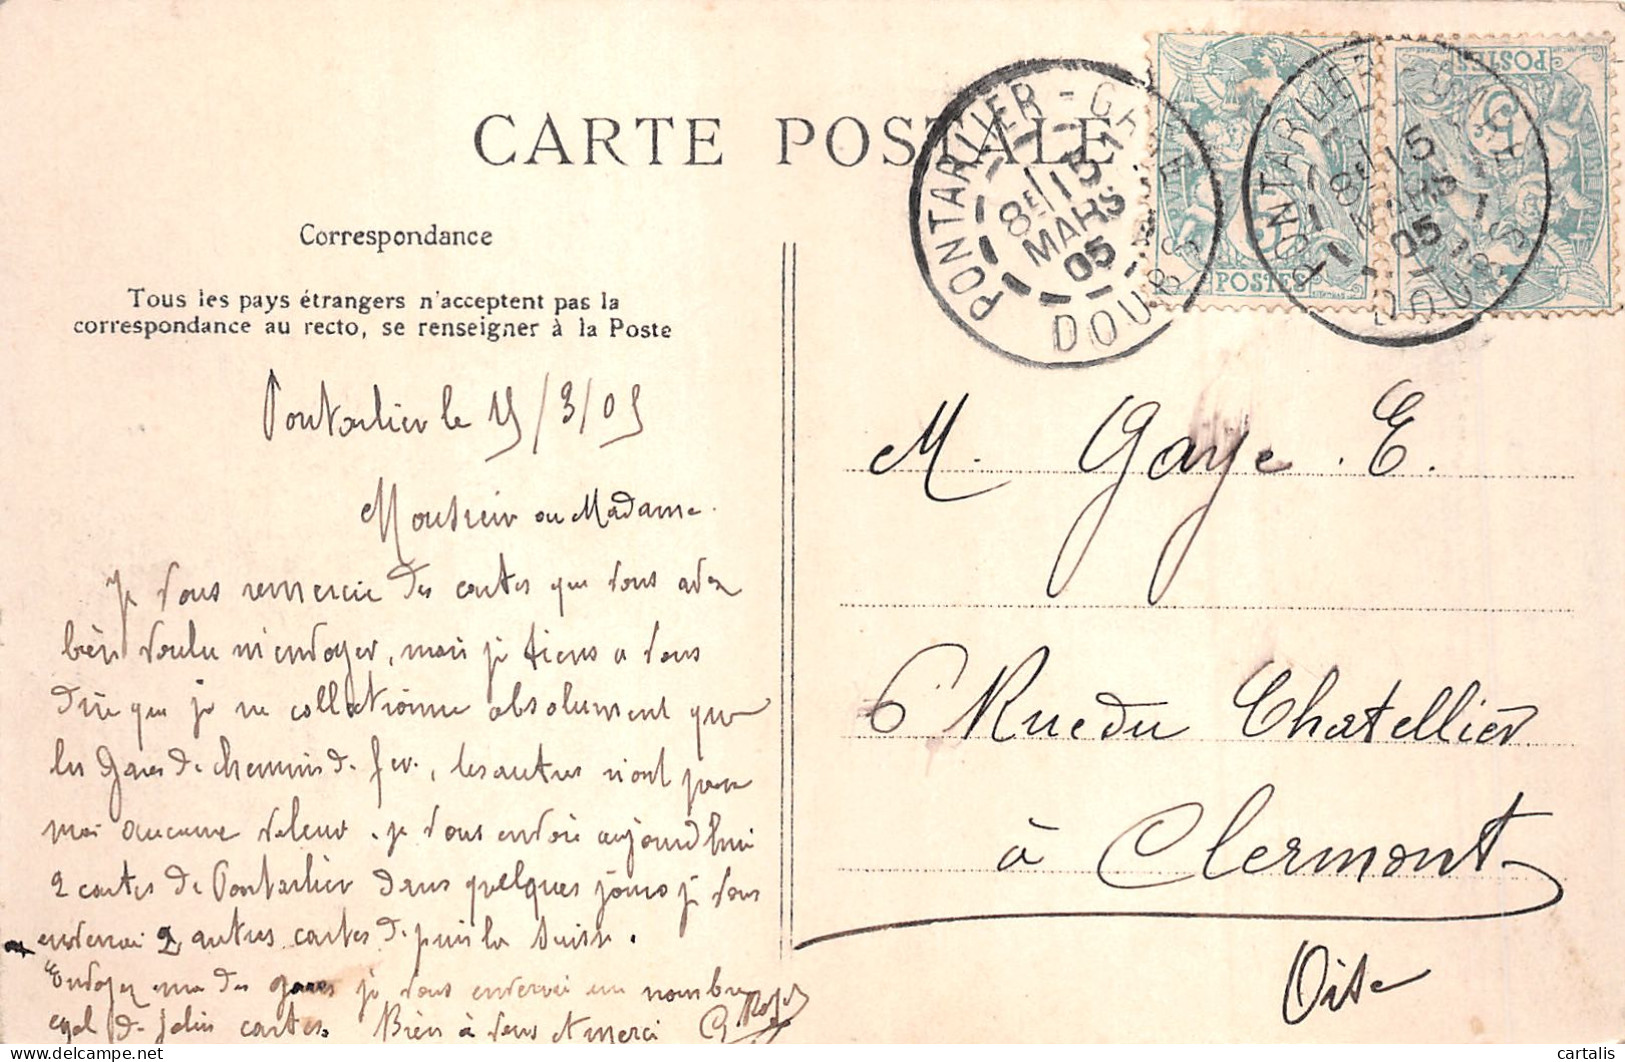 CARTE POSTALE
Correspondance
Tous les pays étrangers n'acceptent pas la
correspondance au recto, se renseigner à la Poste
PONTARLIER - GARE
8E 15
MARS
05
DOUBS
POSTES
PONTARLIER - GARE
8E 15
MARS
05
DOUBS
POSTES
5
Pontarlier le 15/3/05
Monsieur ou Madame.
Je vous remercie des cartes que vous avez
bien voulu m'envoyer, mais je tiens a vous
dire que je ne collectionne absolument que
les gares de chemins de fer, les autres n'ont pour
moi aucune valeur. je vous envoie aujourd'hui
2 cartes de Pontarlier dans quelques jours je vous
enverrai 2 autres cartes depuis la Suisse.
Envoyez moi des gares je vous enverrai un nombre
egal de jolies cartes. Bien à vous et merci
M. Gaye. E.
6 Rue du Chatellier
à Clermont
Oise
www.delcampe.net
cartalis